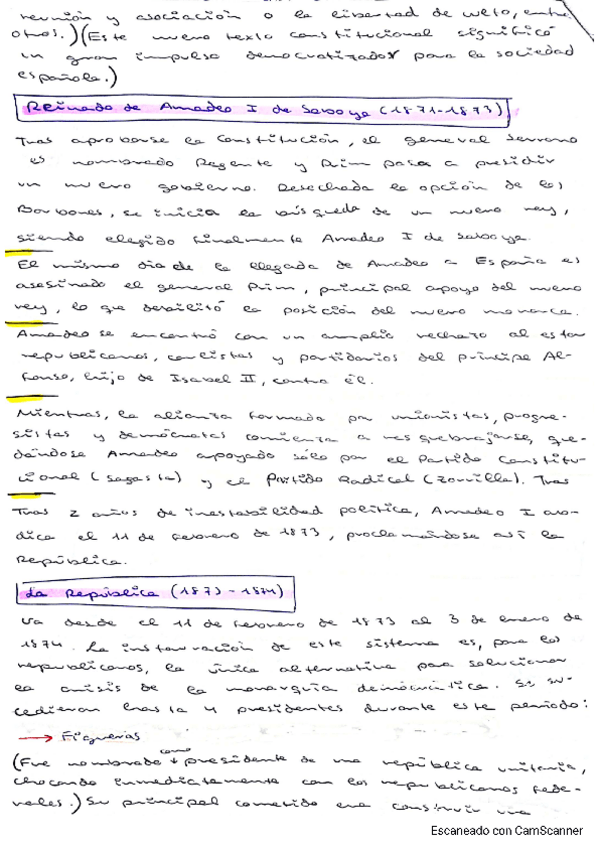 reunión y asociación o la libertad de culto, entre
otros.) (Este nuevo texto constitucional significó
un gran impulso democratizador para la sociedad
española.)
Reinado de Amadeo I de Saboya (1871-1873)
Tras aprobarse la Constitución, el general Serrano
es nombrado Regente y Prim pasa a presidir
un nuevo gobierno. Desechada la opción de los
Borbones, se inicia la búsqueda de un nuevo rey,
siendo elegido finalmente Amadeo I de Saboya.
El mismo día de la llegada de Amadeo a España es
asesinado el general Prim, principal apoyo del nuevo
rey, lo que debilitó la posición del nuevo monarca.
Amadeo se encontró con un amplio rechazo al estar
republicanos, carlistas y partidarios del príncipe Al-
fonso, hijo de Isabel II, contra él.
Mientras, la alianza formada por unionistas, progre-
sistas y demócratas comienza a resquebrajarse, que-
dándose Amadeo apoyado sólo por el Partido Constitu-
cional (Sagasta) y el Partido Radical (Zorrilla). Tras
Tras 2 años de inestabilidad política, Amadeo I ab-
dica el 11 de febrero de 1873, proclamándose así la
República.
La República (1873-1874)
Va desde el 11 de febrero de 1873 al 3 de enero de
1874. La instauración de este sistema es, para los
republicanos, la única alternativa para solucionar
la crisis de la monarquía democrática. Se su-
cedieron hasta 4 presidentes durante este periodo:
→ Figueras
(Fue nombrado como presidente de una república unitaria,
chocando inmediatamente con los republicanos fede-
rales.) Su principal cometido era construir una
Escaneado con CamScanner